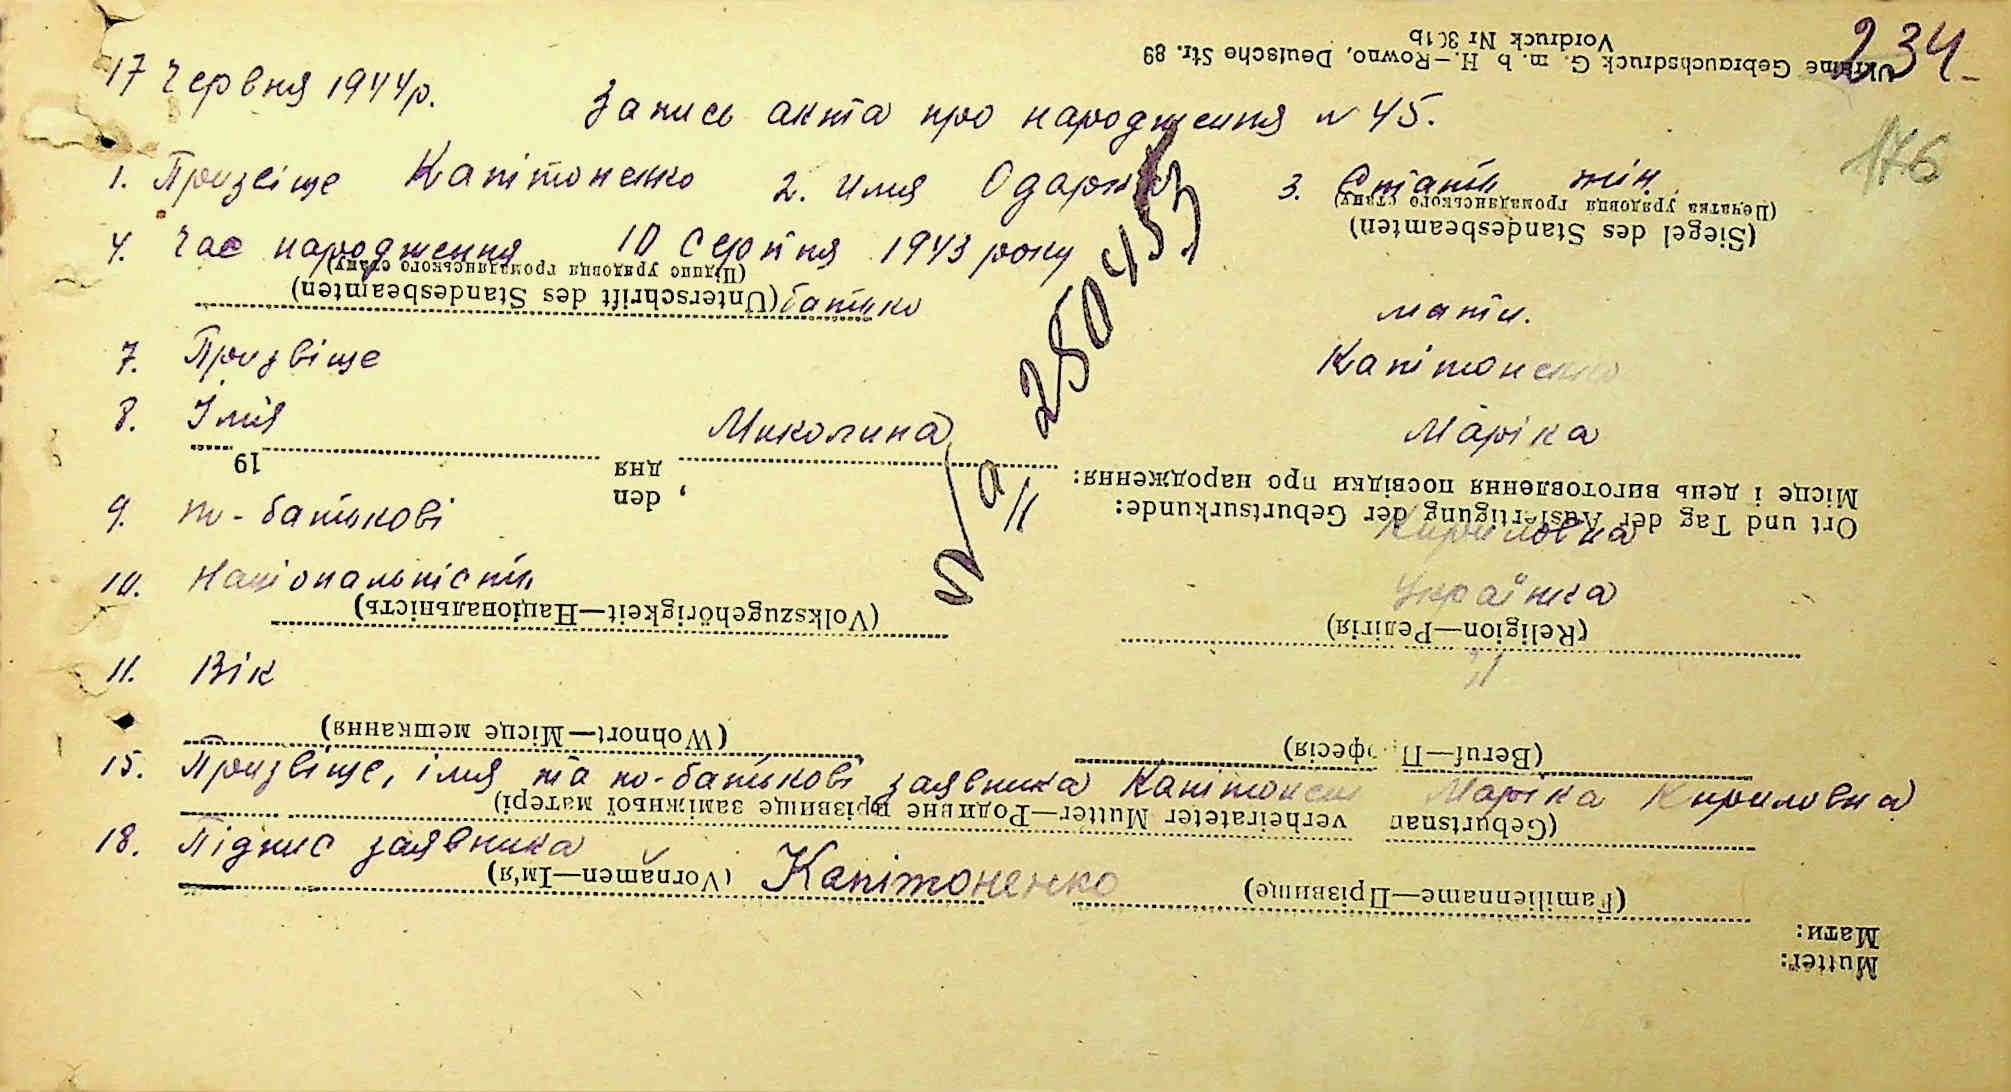 234
176
17 Червня 1944р.
Запись акта про народження № 45.
1. Призвіще Капітоненко 2. Имя Одарка 3. Стать жін
4. Час народження 10 Серпня 1943 року
батько мати.
7. Призвіще Капітоненко
8. Імя Миколина Маріка
9. по-батькові Кириловна
10. Національність Українка
11. Вік 21
15. Призвіще, імя та по-батькові заявника Капітонен Маріка Кириловна
18. Підпис заявника Капітоненко
250453
Mutter:
Мати:
(Familienname—Прізвище) (Vornamen—Ім'я)
(Geburtsnar verheirateter Mutter—Родинне прізвище заміжньої матері)
(Beruf—П офесія) (Wohnort—Місце мешкання)
(Religion—Релігія) (Volkszugehörigkeit—Національність)
Ort und Tag der Ausfertigung der Geburtsurkunde:
Місце і день виготовлення посвідки про народження:
, den
дня
19
(Unterschrift des Standesbeamten)
(Підпис урядовця громадянського стану)
(Siegel des Standesbeamten)
(Печатка урядовця громадянського стану)
Ukraine Gebrauchsdruck G. m. b H.—Rowno, Deutsche Str. 89
Vordruck Nr 301b